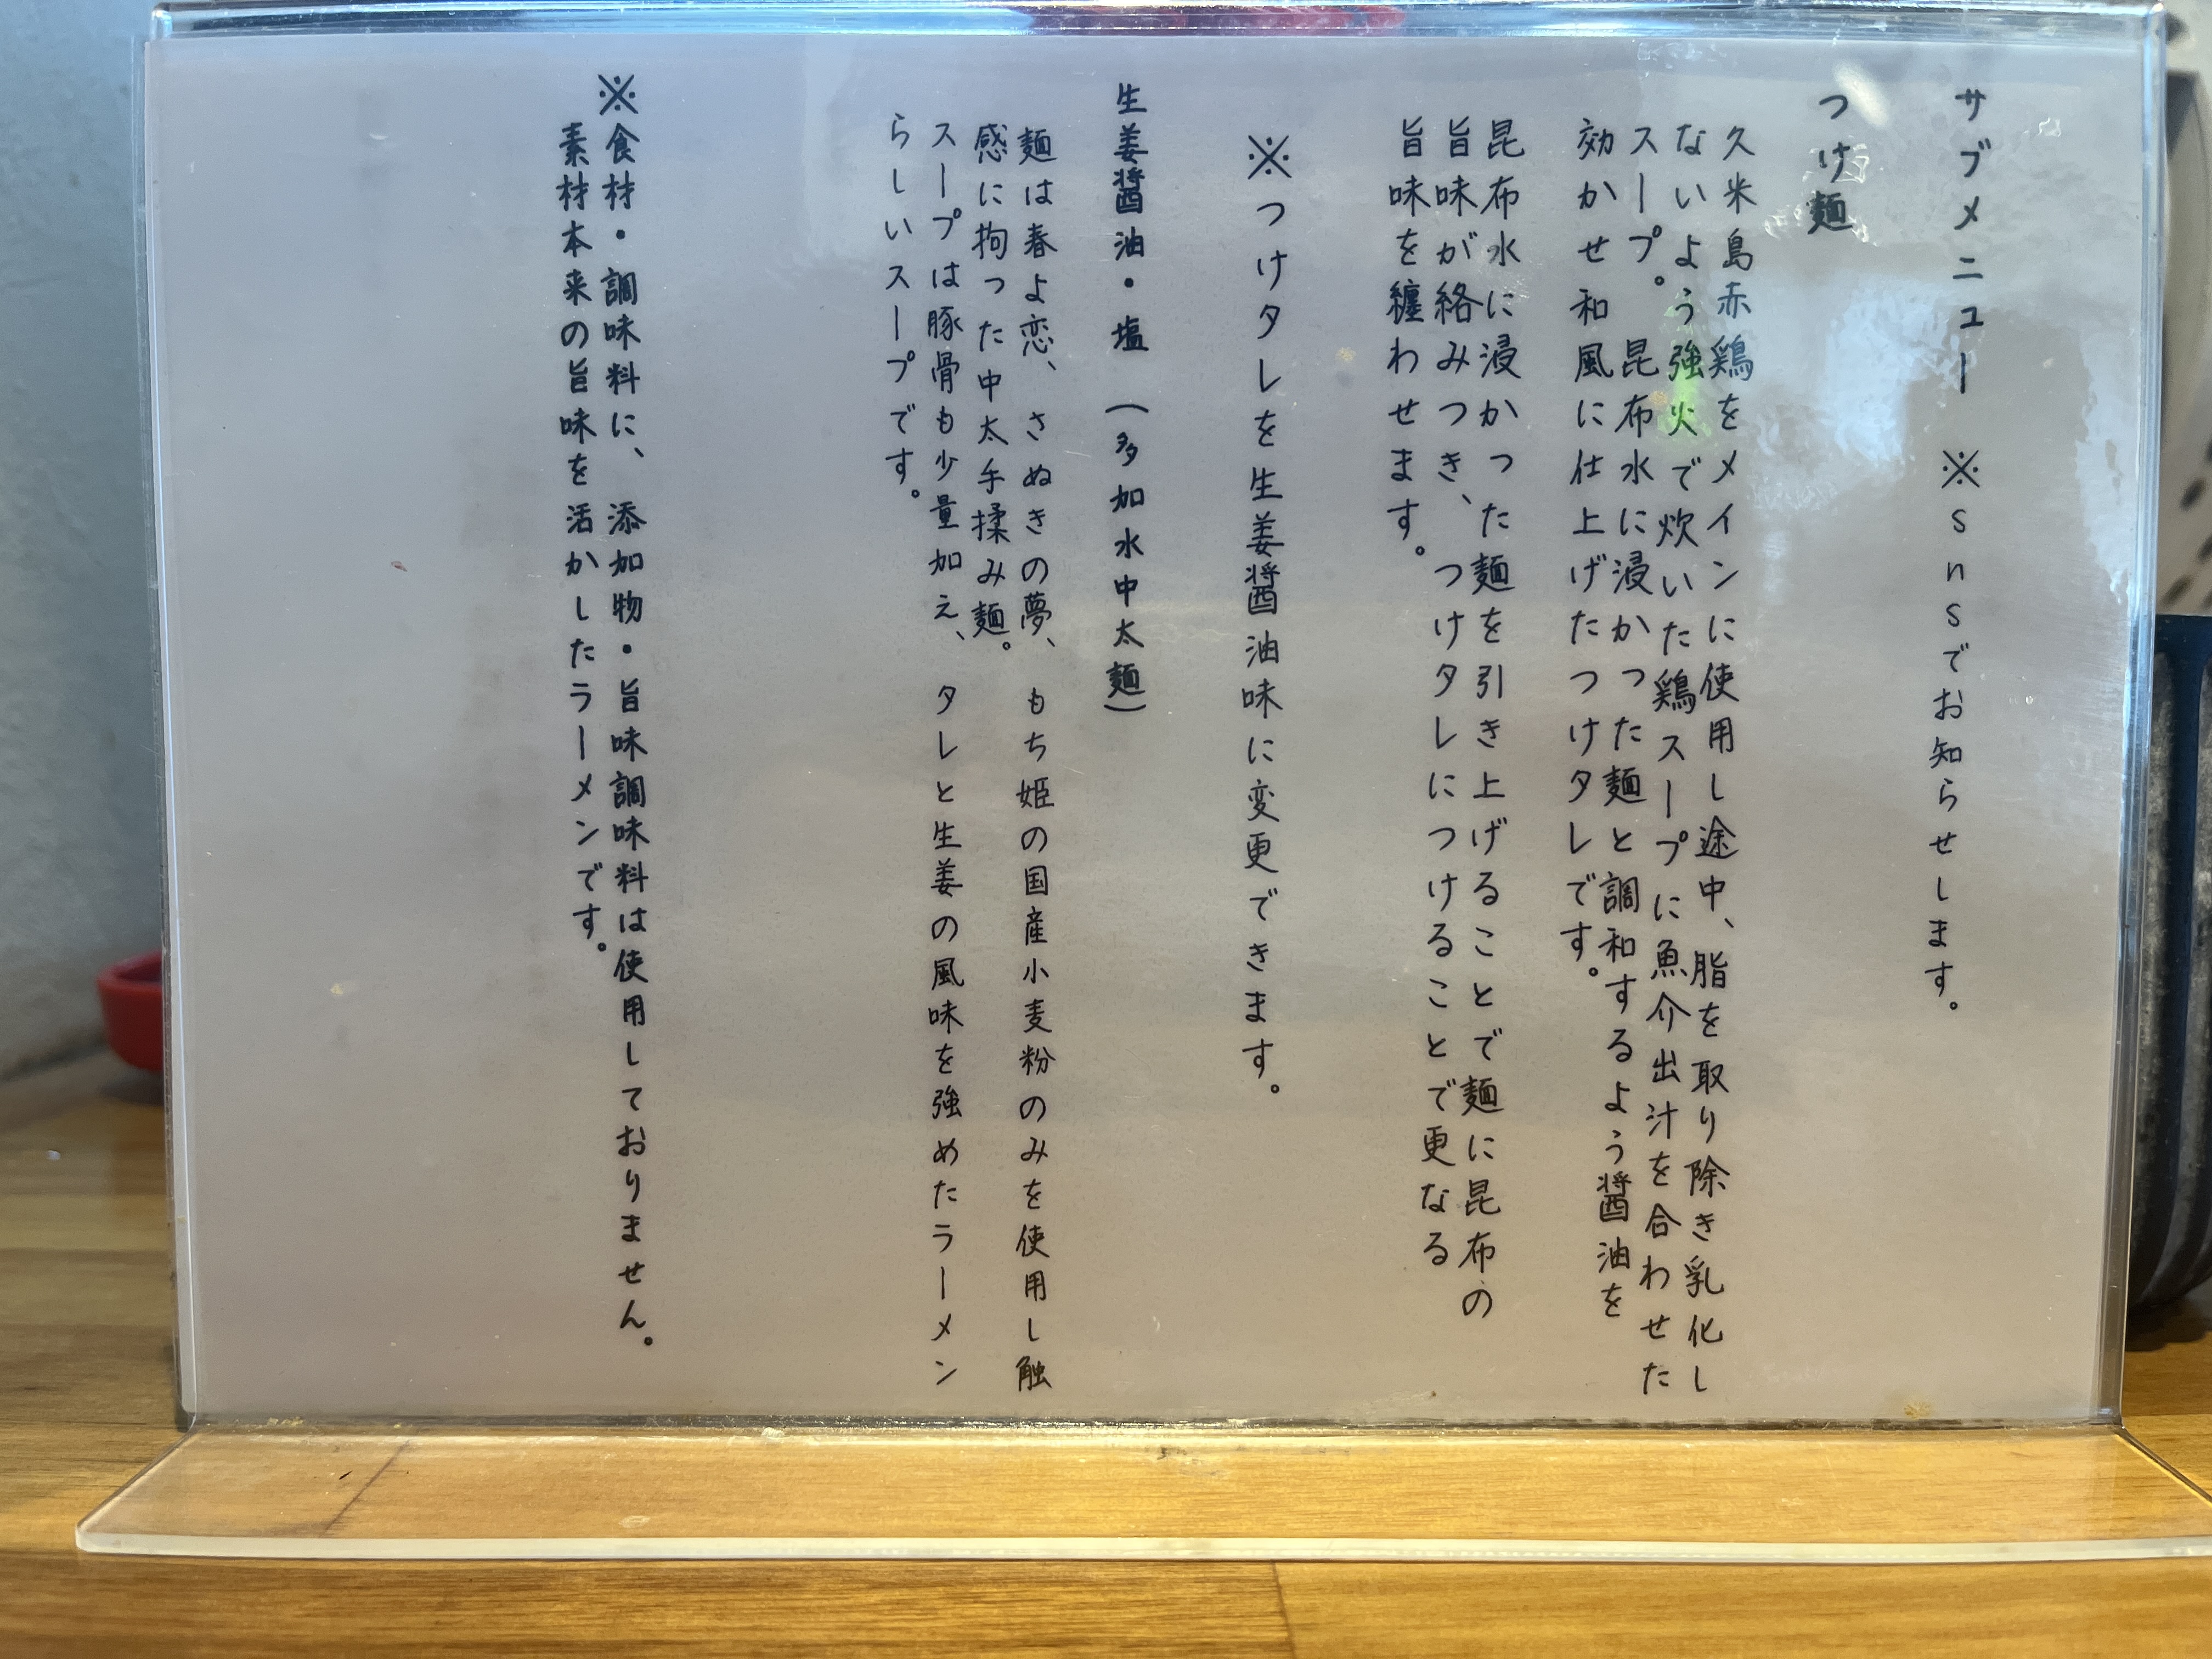 サブメニュー ※snsでお知らせします。
つけ麺
久米島赤鶏をメインに使用し途中、脂を取り除き乳化し
ないよう強火で炊いた鶏スープに魚介出汁を合わせた
スープ。昆布水に浸かった麺と調和するよう醤油を
効かせ和風に仕上げたつけタレです。
昆布水に浸かった麺を引き上げることで麺に昆布の
旨味が絡みつき、つけタレにつけることで更なる
旨味を纏わせます。
※つけタレを生姜醤油味に変更できます。
生姜醤油・塩（多加水中太麺）
麺は春よ恋、さぬきの夢、もち姫の国産小麦粉のみを使用し触
感に拘った中太手揉み麺。
スープは豚骨も少量加え、タレと生姜の風味を強めたラーメン
らしいスープです。
※食材・調味料に、添加物・旨味調味料は使用しておりません。
素材本来の旨味を活かしたラーメンです。